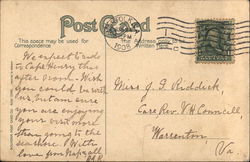 Post Card
This space may be used for
Correspondence
The Address
Written
1908
We expect to do
Cape Henry this
afternoon. Wish
you could be with
us, but am sure
you are enjoying
your visit more
than going to the
seashore.
With
love from
Miss J. G. Riddick,
Care Rev. V H Councill,
Warrenton
Va.